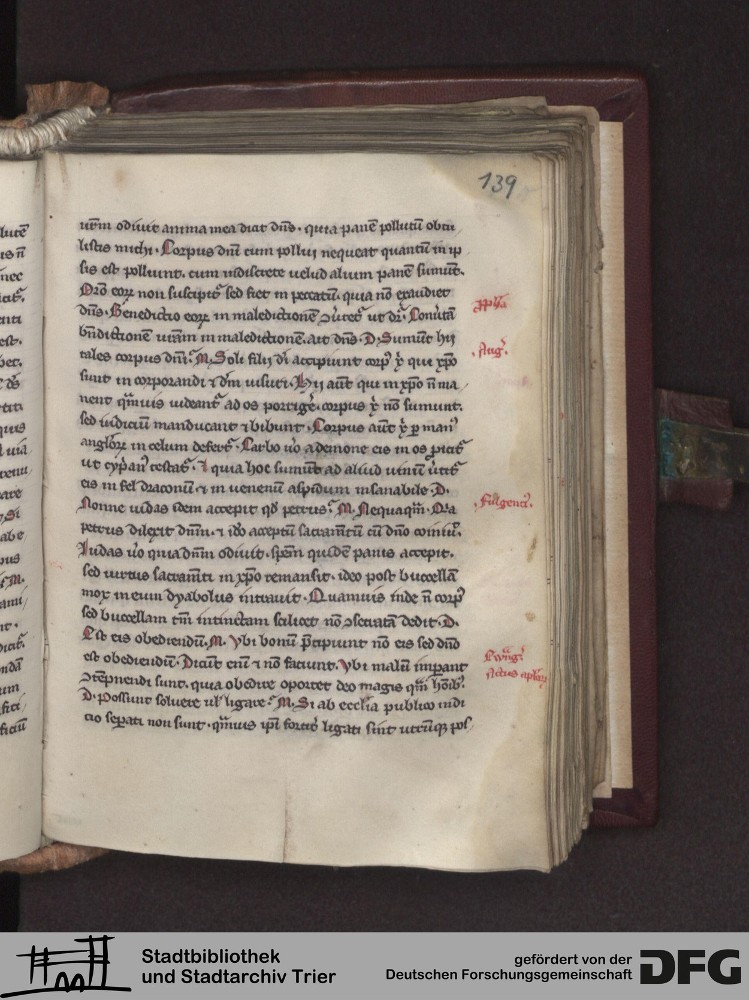 139
ur̄m odiuit anima mea dicit dn̄s · quia panē pollutū obtu
listis michi · Corpus dn̄i cum pollui nequeat quantū in ip
sis est polluunt · cum indiscrete uelud alium panē sumūt ·
Orō eoꝝ non suscipit᷑ sed fiet in peccatū · quia nō exaudiet
dn̄s · Benedictio eoꝝ in maledictionē ꝯuertet᷑ ut dr̄ · Conuertā
bn̄dictionē ur̄am in maledictionē · ait dn̄s · D · Sumūt hii
tales corpus dn̄i · M · Soli filii di accipiunt corpꝰ xp̄i qui xp̄o
sunt in corporandi ⁊ dm̄ uisuri · Hii aūt qui in xp̄o n̄ ma
nent qm̄uis uideant᷑ ad os porrige᷑ · corpus xp̄i nō sumunt ·
sed iudiciū manducant ⁊ bibunt · Corpus aūt xp̄i p manꝰ
angloꝝ in celum defert᷑ · Carbo uo a demone eis in os ꝓicit᷑
ut cyp̄anꝰ testat᷑ · ⁊ quia hoc sumūt ad aliud uinū uertit᷑
eis in fel draconū ⁊ in uenenū aspidum insanabile · D ·
Nonne iudas idem accepit qd̄ petrus · M · Nequaqm̄ · Q̄a
petrus dilexit dn̄m · ⁊ iđo acceptū sacram̄tū cū dn̄o
Iudas uo quia dn̄m odiuit · spēm quidē panis accepit ·
sed uirtus sacram̄ti in xp̄o remansit · ideo post buccellā
mox in eum dyabolus intrauit · Quamuis inde n̄ corpꝰ
sed buccellam tm̄ intinctam scilicet nō ꝯsecratā dedit · D ·
Est eis obediendū · M · Vbi bonū p̄cipiunt nō eis sed dn̄o
est obediendū · Dicūt enī ⁊ nō faciunt · Vbi malū imperant
ꝯtēpnendi sunt · quia obedire oportet deo magis qm̄ hōibꝰ ·
D · Possunt soluere ul̄ ligare · M · Si ab ecclīa publico iudi
cio sep̄ati non sunt · qm̄uis ipi fortit᷑ ligati sint utrūqꝫ pos
Aug᷑ ·
· Fulgentiꝰ ·
Ewāg᷑
Actus apl̄oꝝ
Stadtbibliothek
und Stadtarchiv Trier
gefördert von der
Deutschen Forschungsgemeinschaft
DFG